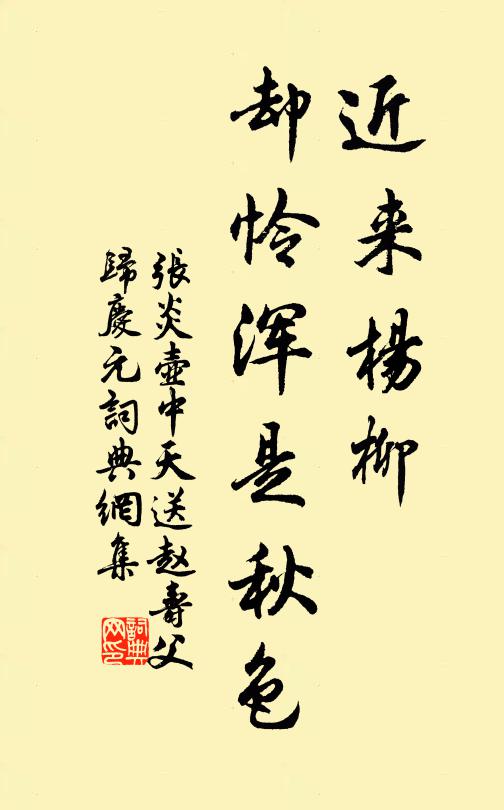 近来楊柳
却怜浑是秋色
張炎壺中天送赵壽父
歸慶元詞典網集
詞典网印